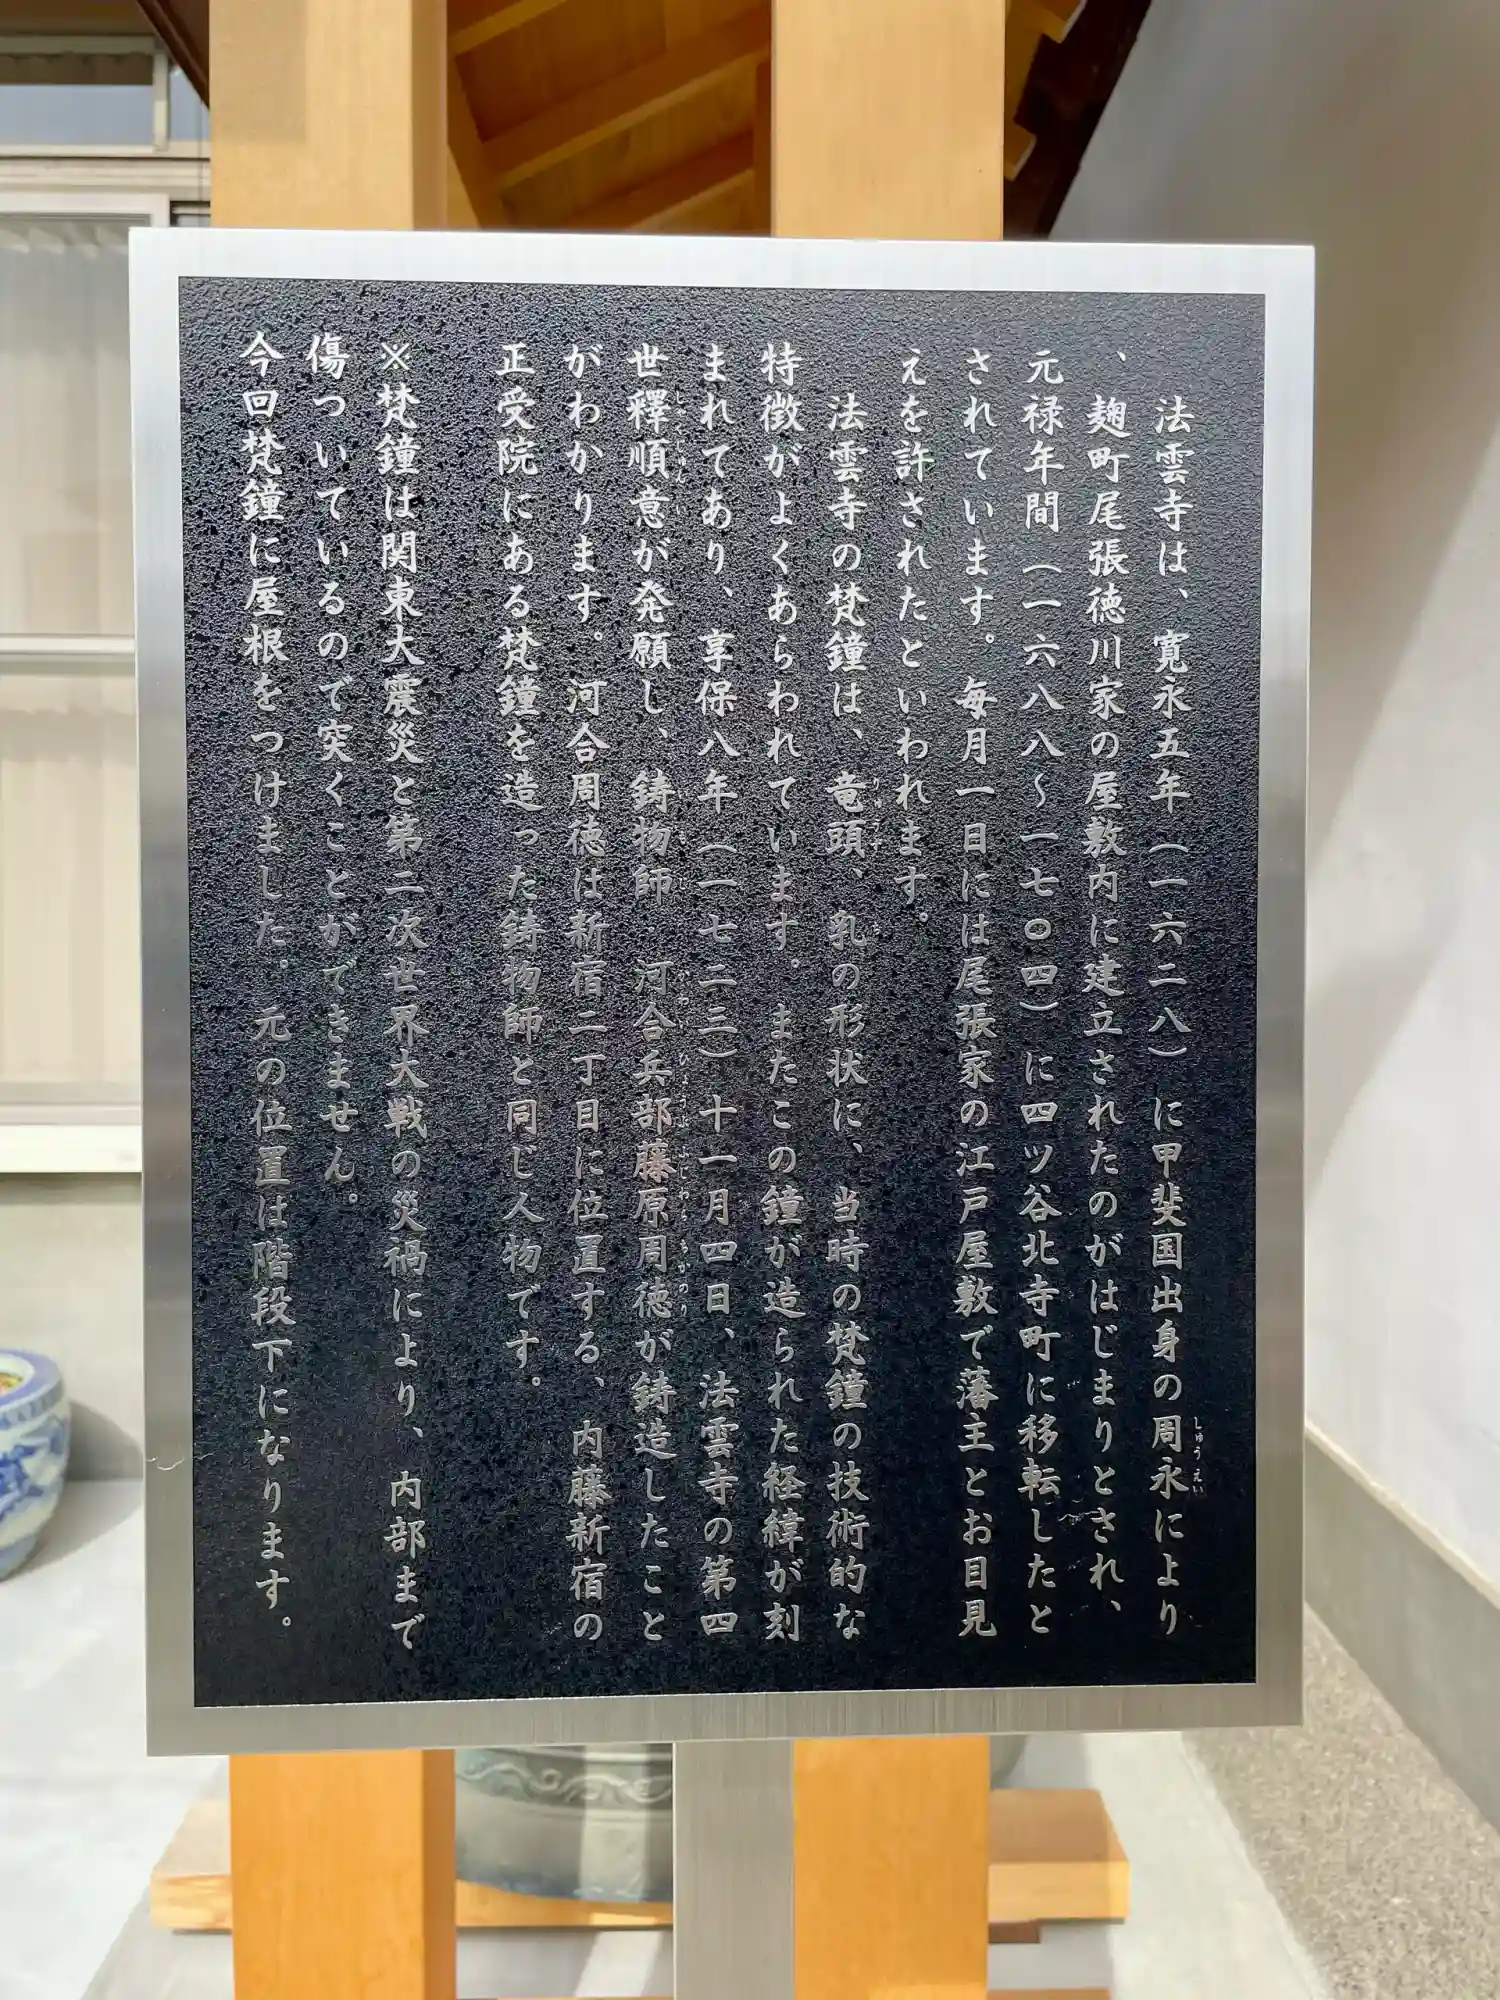 法雲寺は、寛永五年（一六二八）に甲斐国出身の周永により
、麹町尾張徳川家の屋敷内に建立されたのがはじまりとされ、
元禄年間（一六八八～一七〇四）に四ツ谷北寺町に移転したと
されています。毎月一日には尾張家の江戸屋敷で藩主とお目見
えを許されたといわれます。
法雲寺の梵鐘は、竜頭、乳の形状に、当時の梵鐘の技術的な
特徴がよくあらわれています。またこの鐘が造られた経緯が刻
まれてあり、享保八年（一七二三）十一月四日、法雲寺の第四
世釋順意が発願し、鋳物師・河合兵部藤原周徳が鋳造したこと
がわかります。河合周徳は新宿二丁目に位置する、内藤新宿の
正受院にある梵鐘を造った鋳物師と同じ人物です。
※梵鐘は関東大震災と第二次世界大戦の災禍により、内部まで
傷ついているので突くことができません。
今回梵鐘に屋根をつけました。元の位置は階段下になります。